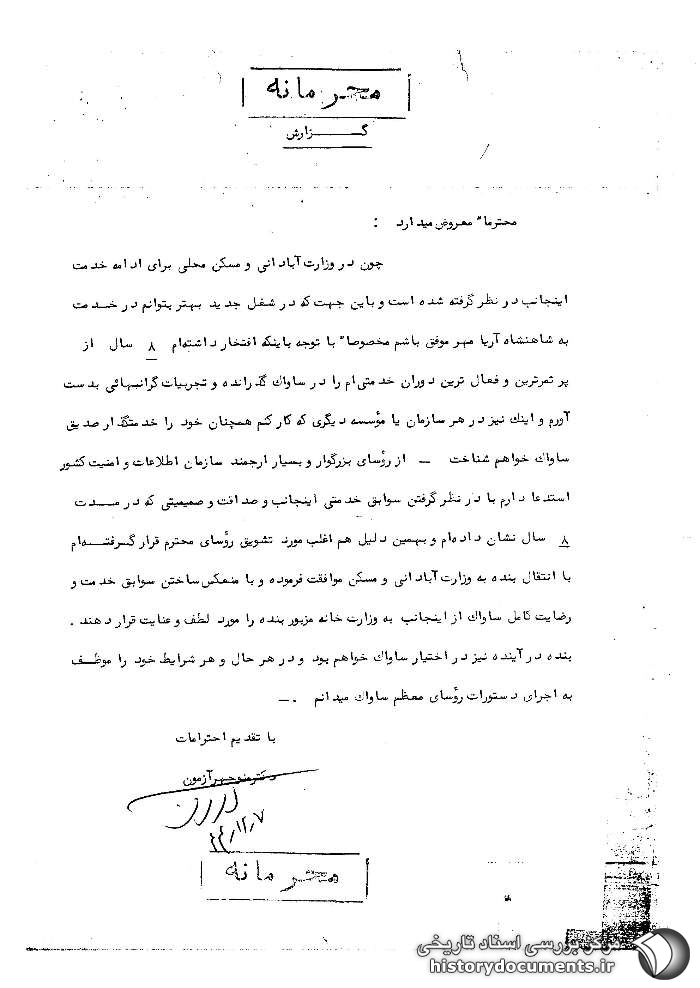 محرمانه
گزارش
محترما" معروض میدارد :
چون در وزارت آبادانی و مسکن محلی برای ادامه خدمت
اینجانب در نظر گرفته شده است و باین جهت که در شغل جدید بهتر بتوانم در خدمت
به شاهنشاه آریا مهر موفق باشم مخصوصا" با توجه باینکه افتخار داشته‌ام ۸ سال از
پر ثمرترین و فعال ترین دوران خدمتی‌ام را در ساواک گذرانده و تجربیات گرانبهائی بدست
آورم و اینک نیز در هر سازمان یا مؤسسه دیگری که کار کنم همچنان خود را خدمتگذار صدیق
ساواک خواهم شناخت ـ از رؤسای بزرگوار و بسیار ارجمند سازمان اطلاعات و امنیت کشور
استدعا دارم با در نظر گرفتن سوابق خدمتی اینجانب و صداقت و صمیمیتی که در مدت
۸ سال نشان داده‌ام و بهمین دلیل هم اغلب مورد تشویق رؤسای محترم قرار گرفته‌ام
با انتقال بنده به وزارت آبادانی و مسکن موافقت فرموده و با منعکس ساختن سوابق خدمت و
رضایت کامل ساواک از اینجانب به وزارت خانه مزبور بنده را مورد لطف و عنایت قرار دهند .
بنده در آینده نیز در اختیار ساواک خواهم بود و در هر حال و هر شرایط خود را موظف
به اجرای دستورات رؤسای معظم ساواک میدانم .ـ
با تقدیم احترامات
دکتر منوچهر آزمون
۴۴/۱۲/۷
محرمانه
مرکز بررسی اسناد تاریخی
historydocuments.ir